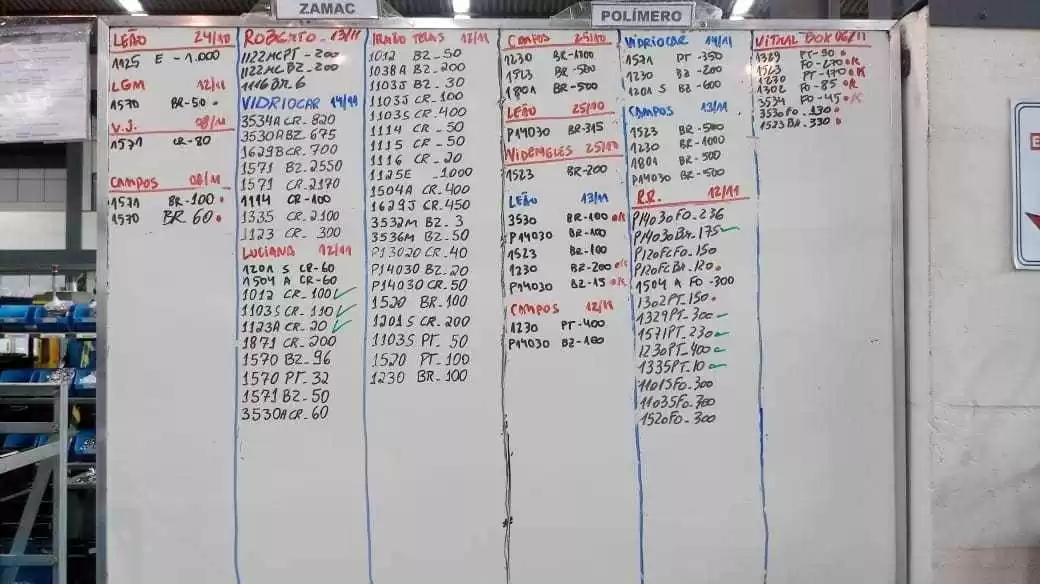 ZAMAC
POLÍMERO
LEÃO 24/10
1125 E - 1.000
LGM 12/11
1570 BR-50
V.J. 08/11
1571 CR-80
CAMPOS 08/11
1571 BR-100
1570 BR 60
ROBERTO - 13/11
1122MCPT - 200
1122MC BZ - 200
1116 BR 6
VIDRIOCAR 14/11
3534A CR - 820
3530A BZ 675
1629B CR - 700
1571 BZ - 2550
1571 CR - 2170
1114 CR - 100
1335 CR - 2100
1123 CR - 300
LUCIANA 12/11
1201 S CR-60
1504 A CR-60
1012 CR - 100
1103S CR - 110
1123A CR - 20
1871 CR - 200
1570 BZ - 96
1570 PT - 32
1571 BZ - 50
3530A CR - 60
12/11
1012 BZ - 50
1038A BZ - 200
1103J BZ - 30
1103J CR - 100
1103S CR - 400
1114 CR - 50
1115 CR - 50
1116 CR - 20
1125E - 1000
1504A CR - 400
1629J CR - 450
3532M BZ - 3
3536M BZ - 50
P13020 CR - 40
P14030 BZ - 20
P14030 CR - 50
1520 BR - 100
1201S CR - 200
1103S PT - 50
1520 PT - 100
1230 BR - 100
CAMPOS 25/10
1230 BR-1700
1523 BR-500
1801 BR-500
LEÃO 25/10
P14030 BR-315
25/10
1523 BR-200
LEÃO 13/11
3530 BR-100 OK
P14030 BR-100
1523 BR-100
1230 BZ-200 OK
P14030 BZ-15 OK
CAMPOS 12/11
1230 PT-400
P14030 BZ-100
VIDRIOCAR 14/11
1571 PT - 350
1230 BZ - 200
1201 S BZ - 600
CAMPOS 13/11
1523 BR - 500
1230 BR - 1000
1801 BR - 500
P14030 BR - 500
R.R. 12/11
P14030 FO - 236
P14030 BR - 175
P120FC FO - 150
P120FC BR - 120
1504 A FO - 300
1302 PT - 150
1329 PT - 300
1571 PT - 230
1230 PT - 400
1335 PT - 10
1101S FO - 300
1103S FO - 300
1520 FO - 300
VITRAL BOX 06/11
1329 PT-90
1523 FO-270 OK
1230 PT-170 OK
1302 FO-85 OK
3534 FO-45 OK
3530 FO - 130
1523 BR - 330